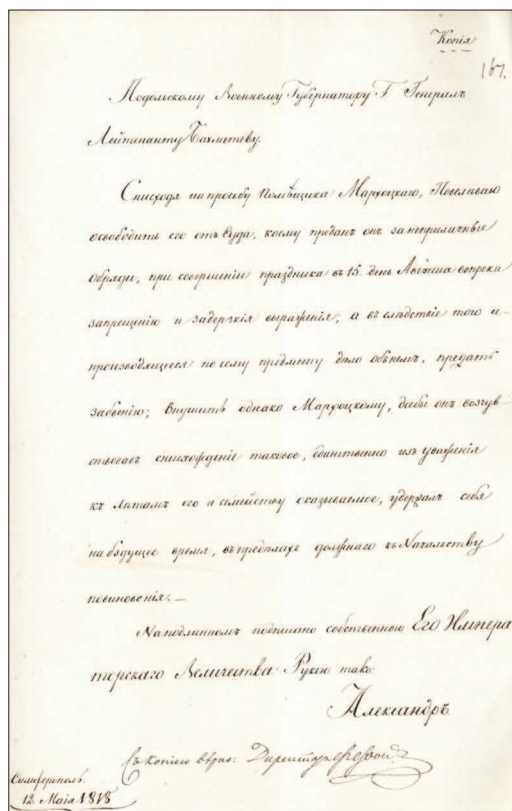 Копія
167.
Подольскому Военному Губернатору Г. Генералъ
Лейтенанту Бахметеву.
Снисходя на просьбу Помѣщика Мархоцкаго, Повелѣваю
освободить его отъ Суда, коему преданъ онъ за неприличные
обряды, при совершеніи праздника въ 15. день Августа вопреки
запрещенію и за дерзкія выраженія; а въ слѣдствіе того и
производящееся по сему предмету дѣло объ немъ, предать
забвенію; Внушить однако Мархоцкому, дабы онъ возчув-
ствовавъ снихожденіе таковое, единственно изъ уваженія
къ лѣтамъ его и семейству оказываемое, удержалъ себя
на будущее время, въ предѣлахъ должнаго къ Начальству
повиновенія. —
На подлинномъ подписано собственною Его Импера
торскаго Величества Рукою тако
Александръ
Съ копіею вѣрно: Директоръ
Симферополь.
12. Маія 1818